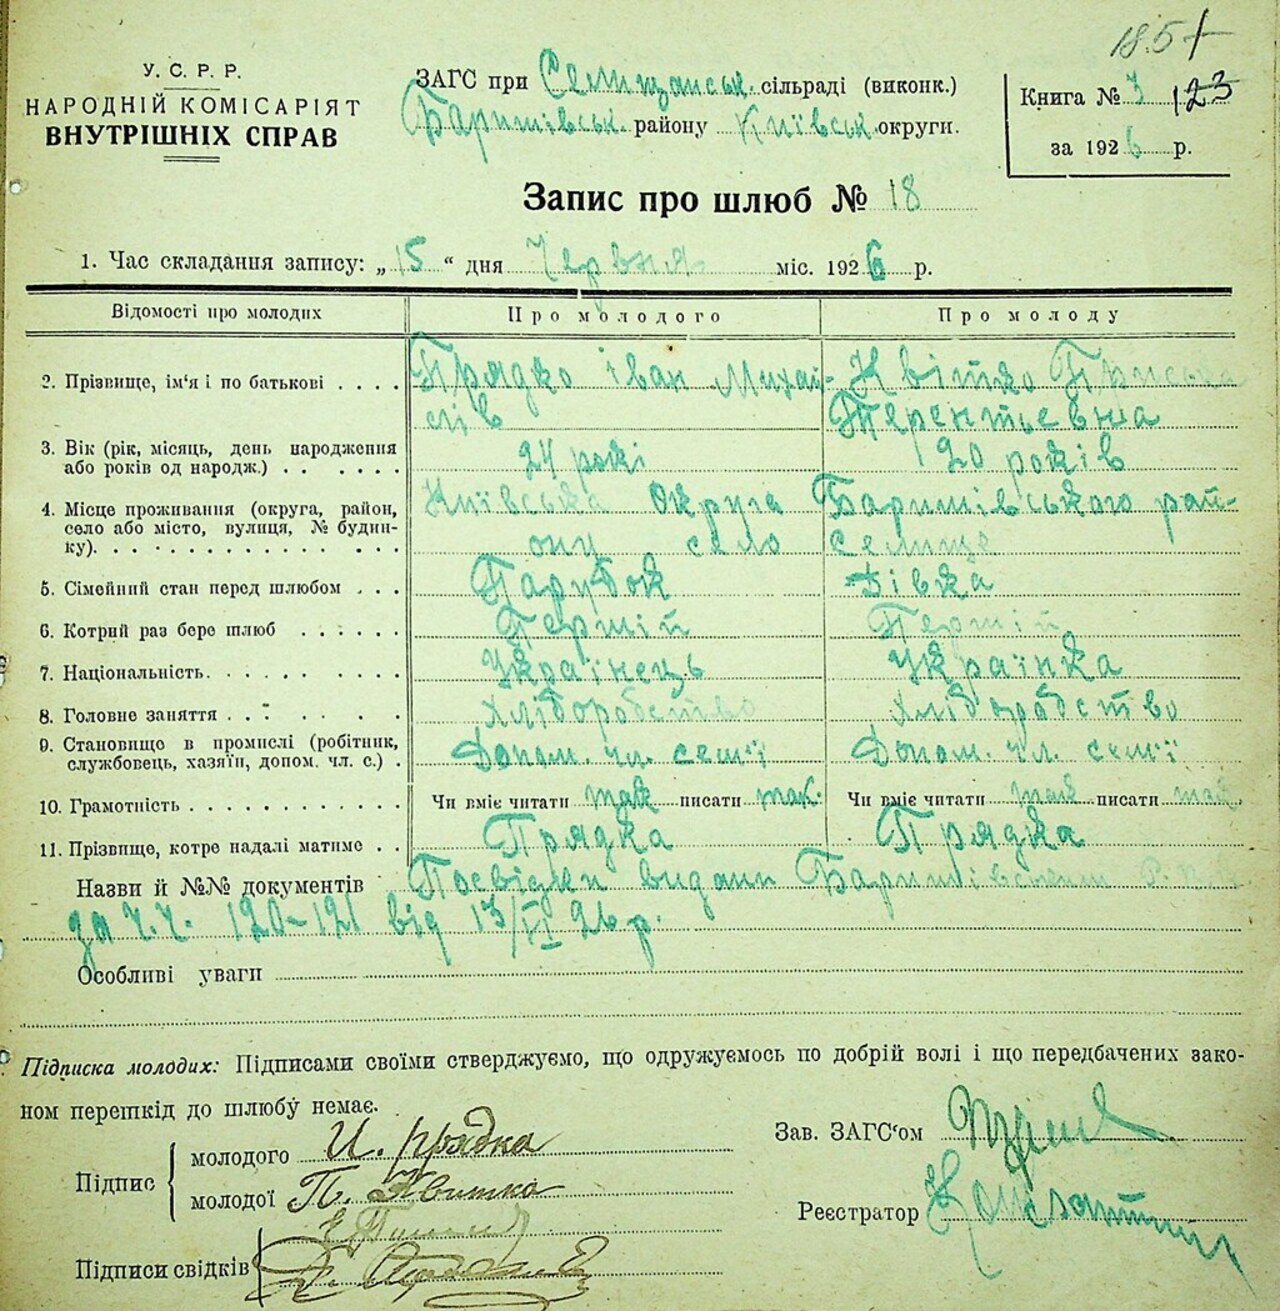 185
У. С. Р. Р.
НАРОДНІЙ КОМІСАРІЯТ
ВНУТРІШНІХ СПРАВ
ЗАГС при Селищанськ. сільраді (виконк.)
Баришівськ. району Київськ. округи.
Книга № 3 123
за 1926 р.
Запис про шлюб № 18
1. Час складання запису: „15“ дня Червня міс. 1926 р.
Відомості про молодих Про молодого Про молоду
2. Прізвище, ім‘я і по батькові . . . . Прядко Іван Михай- Квітко Приська
лів Терентьевна
3. Вік (рік, місяць, день народження
або років од народж.) . . . . . . 24 рокі 20 років
4. Місце проживання (округа, район, Київська округа Баришівського рай-
село або місто, вулиця, № будин-
ку). . . . . . . . . . . . . . . . ону село Селище
5. Сімейний стан перед шлюбом . . . Парубок Дівка
6. Котрий раз бере шлюб . . . . . . Першій Першій
7. Національність. . . . . . . . . . Українець Українка
8. Головне заняття . . . . . . . . Хліборобство Хліборобство
9. Становищо в промислі (робітник,
службовець, хазяїн, допом. чл. с.) . Допом. чл. семї Допом. чл. семї
10. Грамотність . . . . . . . . . . . . Чи вміє читати так писати так. Чи вміє читати так писати так.
11. Прізвище, котре надалі матиме . . Прядка Прядка
Назви й №№ документів Посвідки видани Баришівським Р.
за Ч.Ч. 120-121 від 13/VI 26 р.
Особливі уваги
Підписка молодих: Підписами своїми стверджуємо, що одружуємось по добрій волі і що передбачених зако-
ном перешкід до шлюбу немає.
Підпис
молодого И. Прядка
молодої П. Квитка
Підписи свідків
Зав. ЗАГС‘ом
Реєстратор